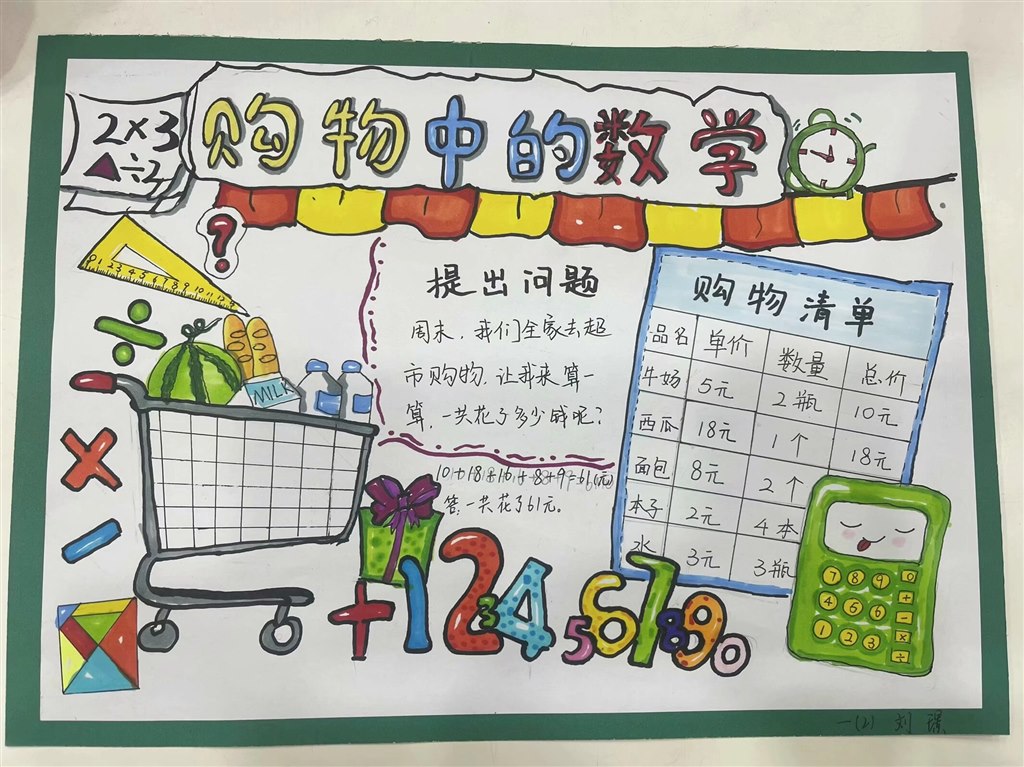 购物中的数学
2×3
?
0 1 2 3 4 5 6 7 8 9 10 11 12 13
提出问题
周末，我们全家去超
市购物，让我来算一
算，一共花了多少钱呢？
10+18+16+8+9=61(元)
答:一共花了61元。
MILK
购物清单
品名 单价 数量 总价
牛奶 5元 2瓶 10元
西瓜 18元 1个 18元
面包 8元 2个
本子 2元 4本
水 3元 3瓶
+1234567890
7 8 9 0
4 5 6 +
1 2 3 -
×
÷
一(2) 刘